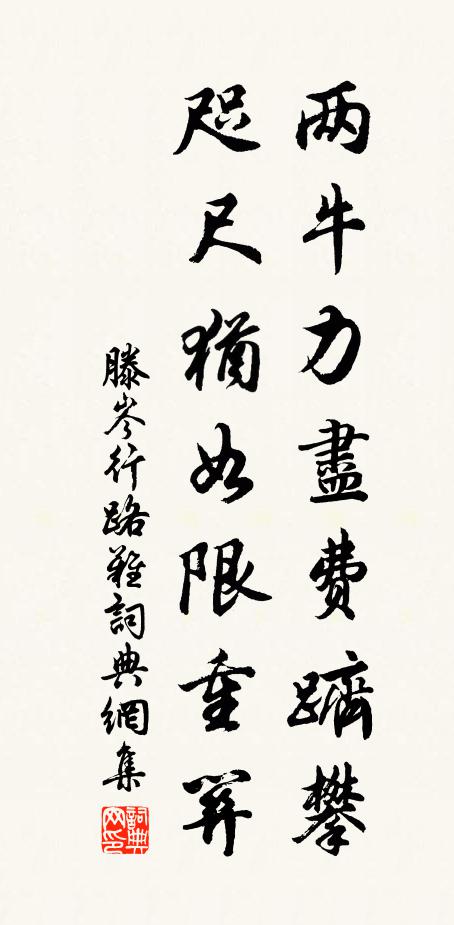 两牛力盡費躋攀
咫尺猶如限重關
滕岑行路難詞典網集
詞典網印